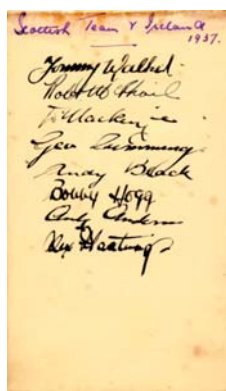 Scottish Team v Ireland
1937.
Tommy Walker.
Robt McPhail
Geo Cummings
Andy Black
Bobby Hogg
Andy Anderson
Alex Hastings